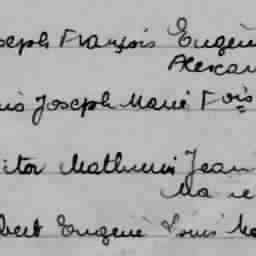 seph François Eugèn
Alexan
is Joseph Marie Fois
ictor Mathurin Jean
Ma
bert Eugène Louis Ma